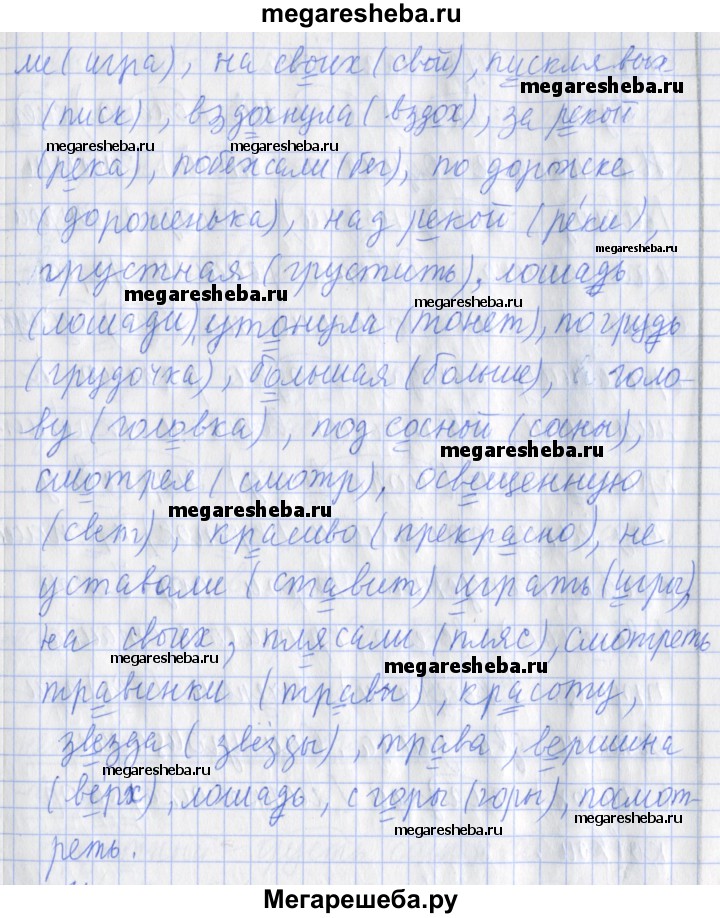 megaresheba.ru
ли (игра), на своих (свой), пискливых
megaresheba.ru
(писк), вздохнула (вздох), за рекой
megaresheba.ru
megaresheba.ru
(река), побежали (бег), по дорожке
(дороженька), над рекой (ре́ки),
megaresheba.ru
грустная (грустить), лошадь
megaresheba.ru
megaresheba.ru
(лошади), утонула (тонет), по грудь
megaresheba.ru
(грудочка), большая (больше), голо-
ву (головка), под сосной (сосны),
megaresheba.ru
смотрел (смотр), освещенную
megaresheba.ru
(свет), красиво (прекрасно), не
уставали (ставит) играть (игры),
на своих, плясали (пляс), смотреть
megaresheba.ru
megaresheba.ru
травинки (травы), красоту,
звезда (звёзды), трава, вершина
megaresheba.ru
(верх), лошадь, с горы (горы), посмот-
megaresheba.ru
megaresheba.ru
реть.
Мегарешеба.ру